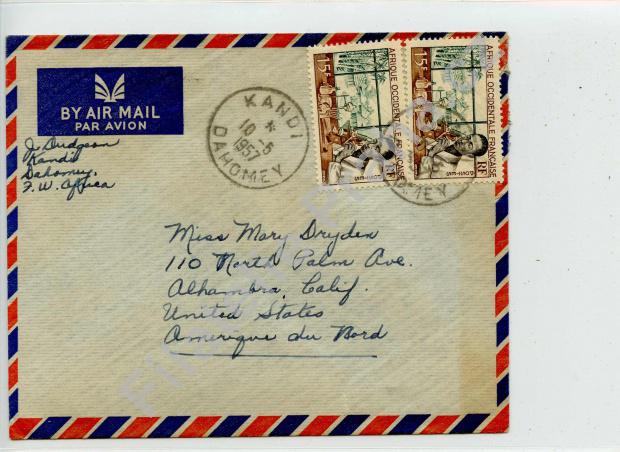 BY AIR MAIL
PAR AVION
J. Dudgeon
Kandi
Dahomey
F.W. Africa
KANDI
10 - 5
1957
DAHOMEY
15F
AFRIQUE OCCIDENTALE FRANÇAISE
RF
15F
AFRIQUE OCCIDENTALE FRANÇAISE
RF
OMEY
Miss Mary Dryden
110 North Palm Ave.
Alhambra, Calif.
United States
Amerique du Nord